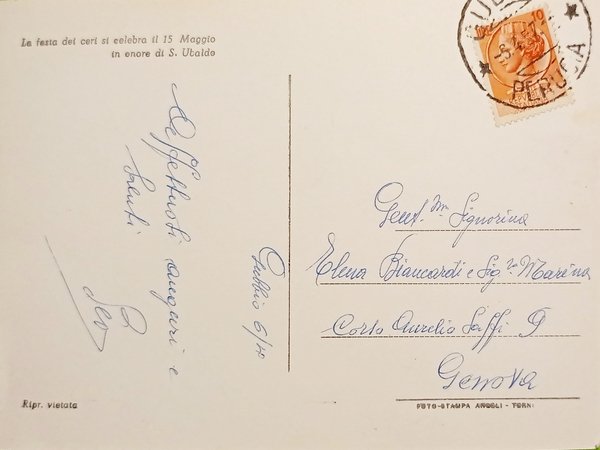 La festa dei ceri si celebra il 15 Maggio
in onore di S. Ubaldo
Affettuosi auguri e
saluti
Gubbio 6/4
10
PERUGIA
Gent.me Signorina
Elena Biancardi e Sig.ra Marina
Corso Aurelio Saffi 9
Genova
Ripr. vietata
FOTO-STAMPA ANGELI - TERNI